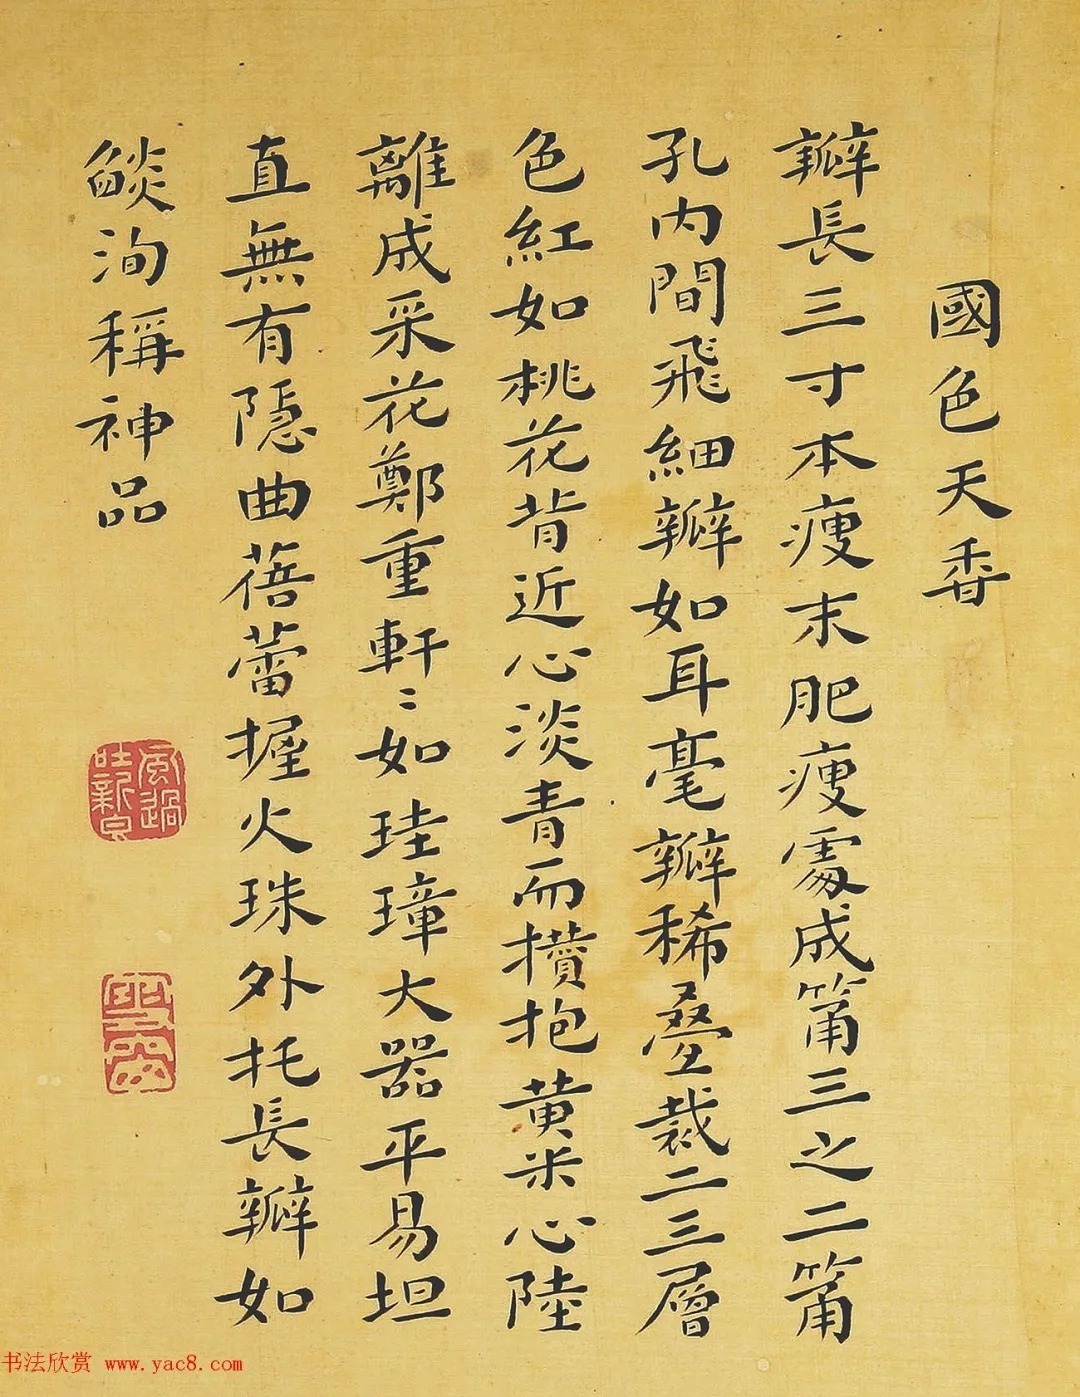 國色天香
瓣長三寸本瘦末肥瘦處成筩三之二筩
孔內間飛細瓣如耳毫瓣稀疊裁二三層
色紅如桃花背近心淡青而攢抱黃米心陸
離成采花鄭重軒〻如珪璋大器平易坦
直無有隱曲蓓蕾握火珠外托長瓣如
燄洵稱神品
書法欣赏 www.yac8.com